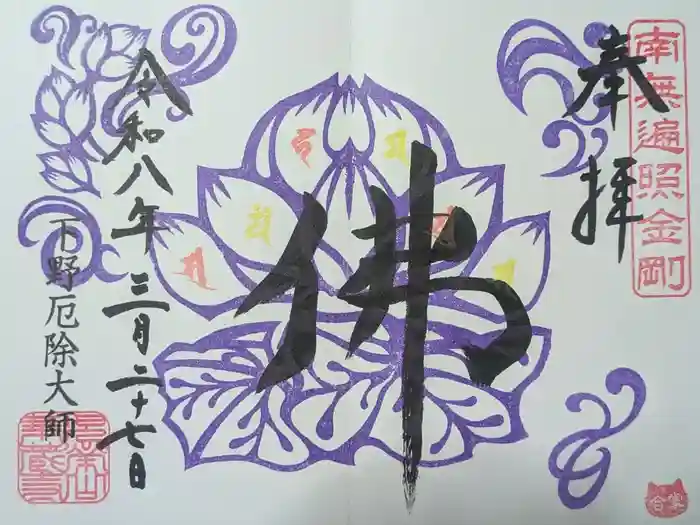 奉拝
南無遍照金剛
佛
令和八年三月二十七日
下野厄除大師